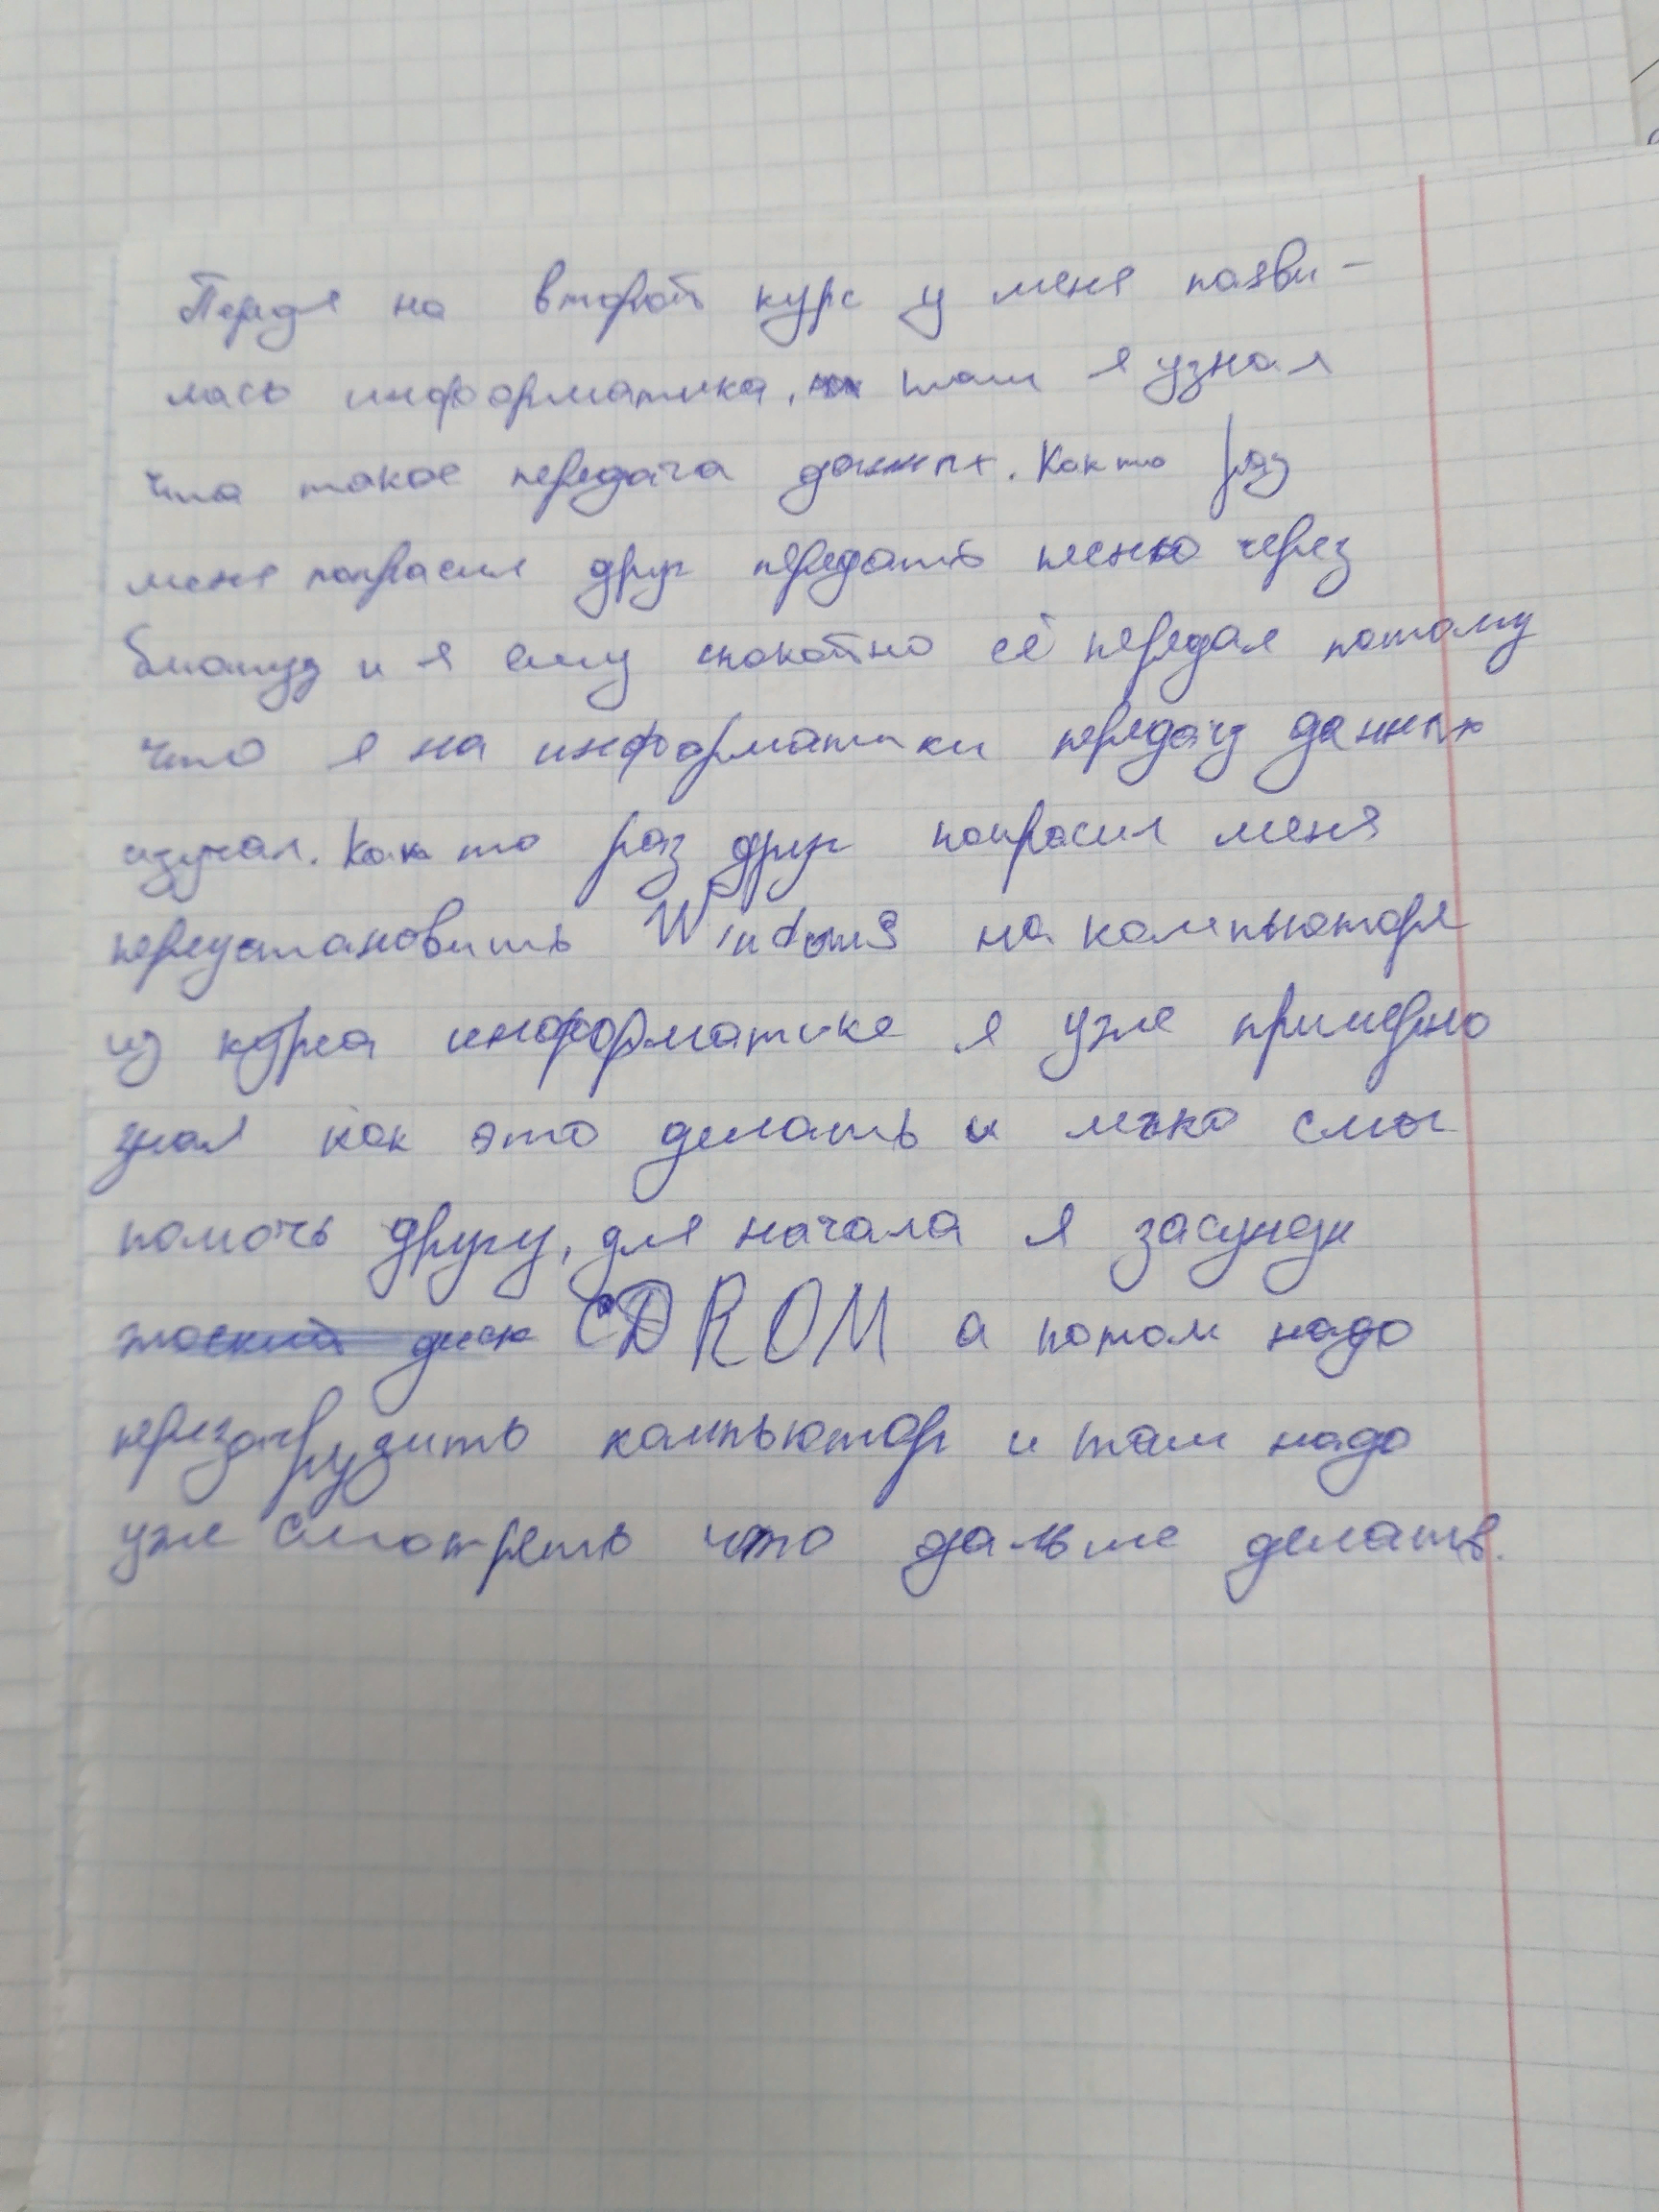 Передя на второй курс у меня паяви-
лась информатика, там я узнал
что такое передача данных. Как то раз
меня попрасил друг передать песню через
блютуз и я ему спокойно её передал потому
что я на информатики передачу данных
изучал. Как то раз друг попрасил меня
переустановить Windows на компьюторе
из курса информатике я уже примерно
знал как это делать и легко смог
помочь другу, для начала я
CD ROM а потом надо
перезагрузить компьютор и там надо
уже смотреть что дальше делать.